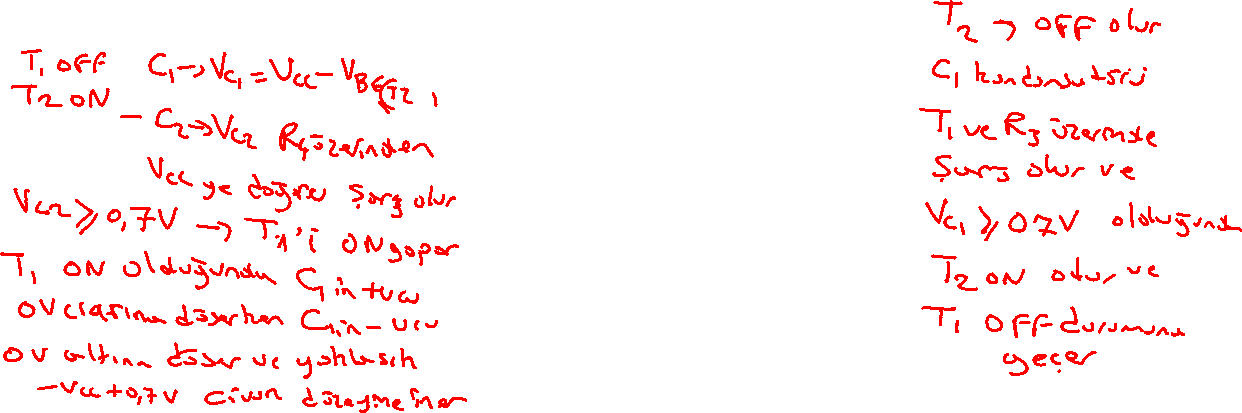 T1 OFF C1→VC1 = VCC – VBET2,
T2 ON – C2→VC2 R4 üzerinden
VCC ye doğru şarj olur
VC2 ⩾ 0,7V → T1'i ON yapar
T1 ON olduğunda C1 in + ucu
0V civarına düşerken C1 in – ucu
0V altına düşer ve yaklaşık
–VCC+0,7V civarı düzeyine iner
T2 → OFF olur
C1 kondansatörü
T1 ve R3 üzerinde
Şarj olur ve
VC1 ⩾ 0.7V olduğunda
T2 ON olur ve
T1 OFF durumuna
geçer